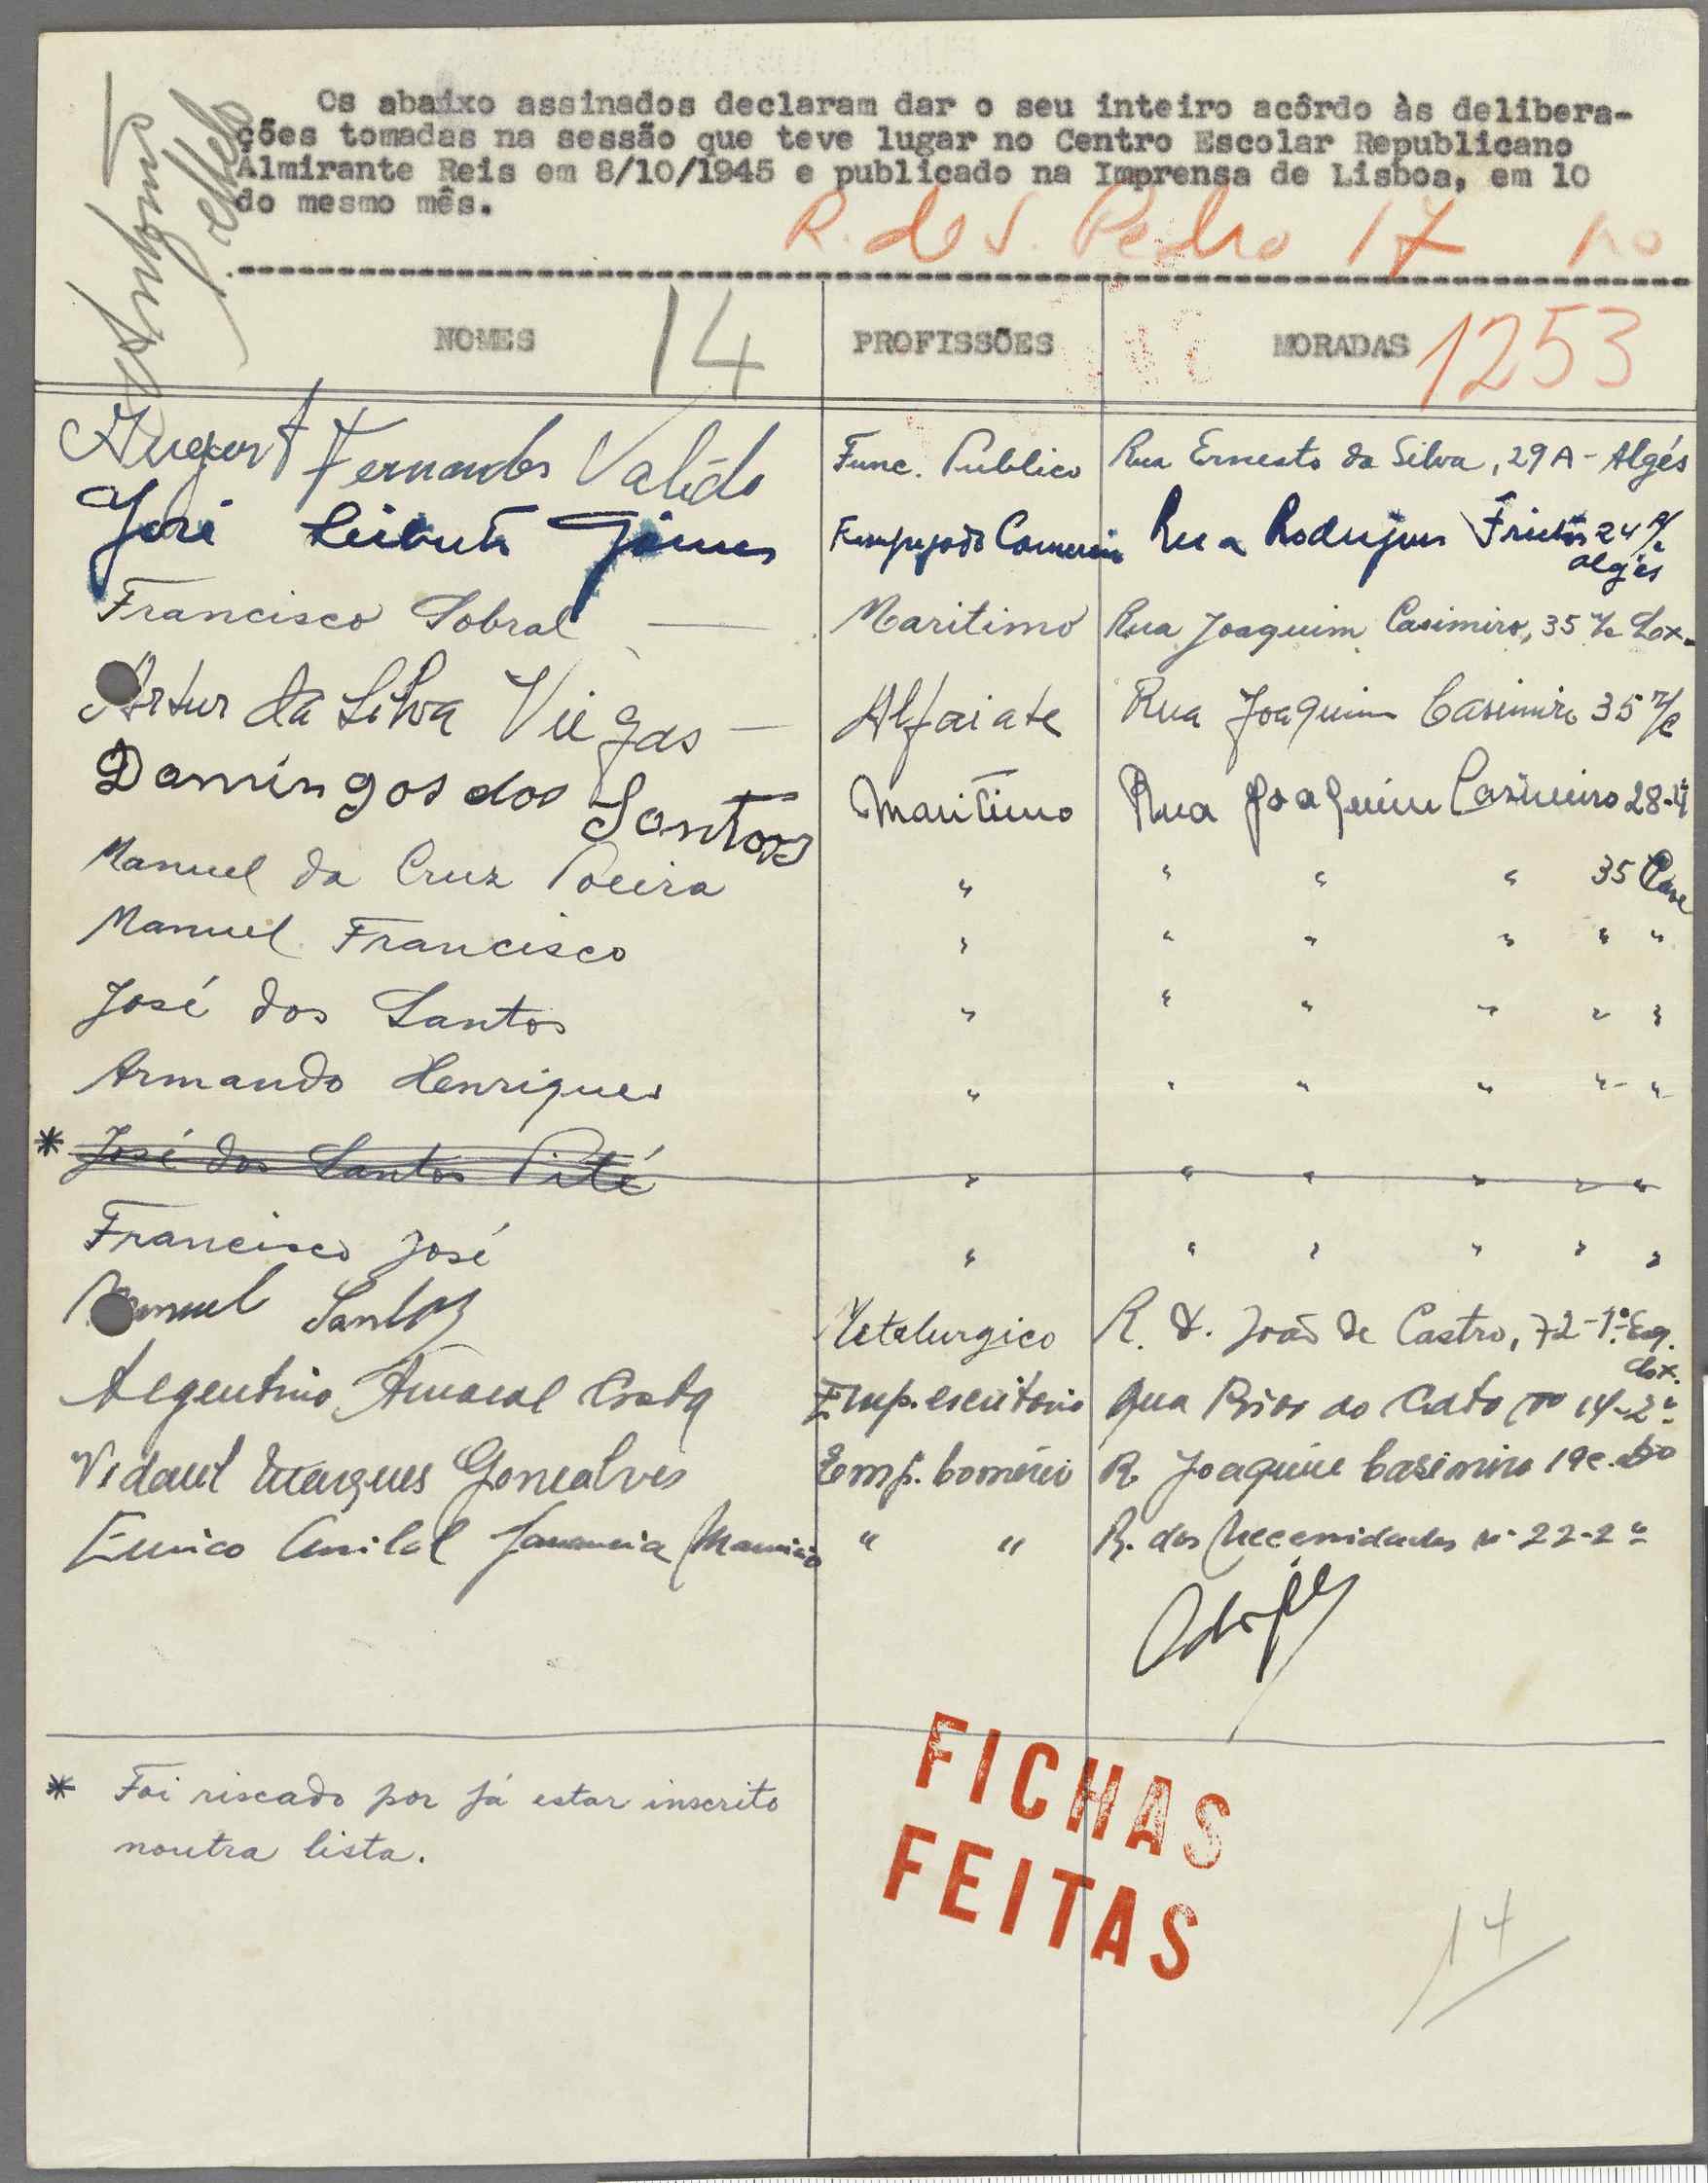 Os abaixo assinados declaram dar o seu inteiro acôrdo às delibera-
ções tomadas na sessão que teve lugar no Centro Escolar Republicano
Almirante Reis em 8/10/1945 e publicado na Imprensa de Lisboa, em 10
do mesmo mês.
R. de S. Pedro 17
NOMES 14 PROFISSÕES MORADAS 1253
Fernandes Valido Func. Publico Rua Ernesto da Silva, 29A - Algés
José Gomes Empregado Comercio Rua Rodrigues 24 r/c
Algés
Francisco Sobral Maritimo Rua Joaquim Casimiro, 35 r/c Lx.
Artur da Silva Viegas Alfaiate Rua Joaquim Casimiro 35 r/c
Domingos dos Santos Maritimo Rua Joaquim Casimiro 28-
Manuel da Cruz Poeira " " " " 35 Cave
Manuel Francisco " " " " " "
José dos Santos " " " " " "
Armando Henriques " " " " " "
* José dos Santos Pité " " " " " "
Francisco José " " " " " "
Manuel Santos Metalurgico R. D. João de Castro, 72-1º Esq.
Lx.
Argentino Amaral Costa Emp. escritorio Rua Prior do Crato nº 14-2º
Vidaul Marques Gonçalves Emp. Comércio R Joaquim Casimiro 19
Eurico Anibal " " R. das Necessidades nº 22-2º
* Foi riscado por já estar inscrito
noutra lista.
FICHAS
FEITAS
14